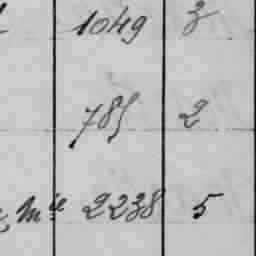 1049 3
785 2
Mie 2238 5